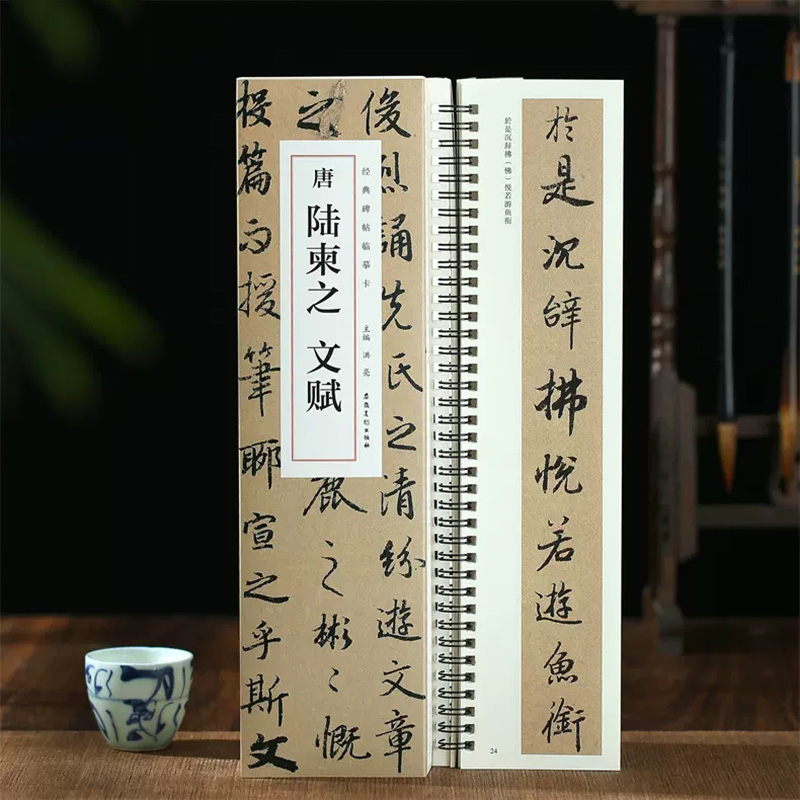 俊烈誦先氏之清紛遊文章
之麗之彬〻慨
投篇而援筆聊宣之乎斯文
经典碑帖临摹卡
主编 洪亮
安徽美术出版社
唐 陆柬之 文赋
於是沉辝拂悅若遊魚銜
於是沉辞拂（怫）悦若游鱼衔
24